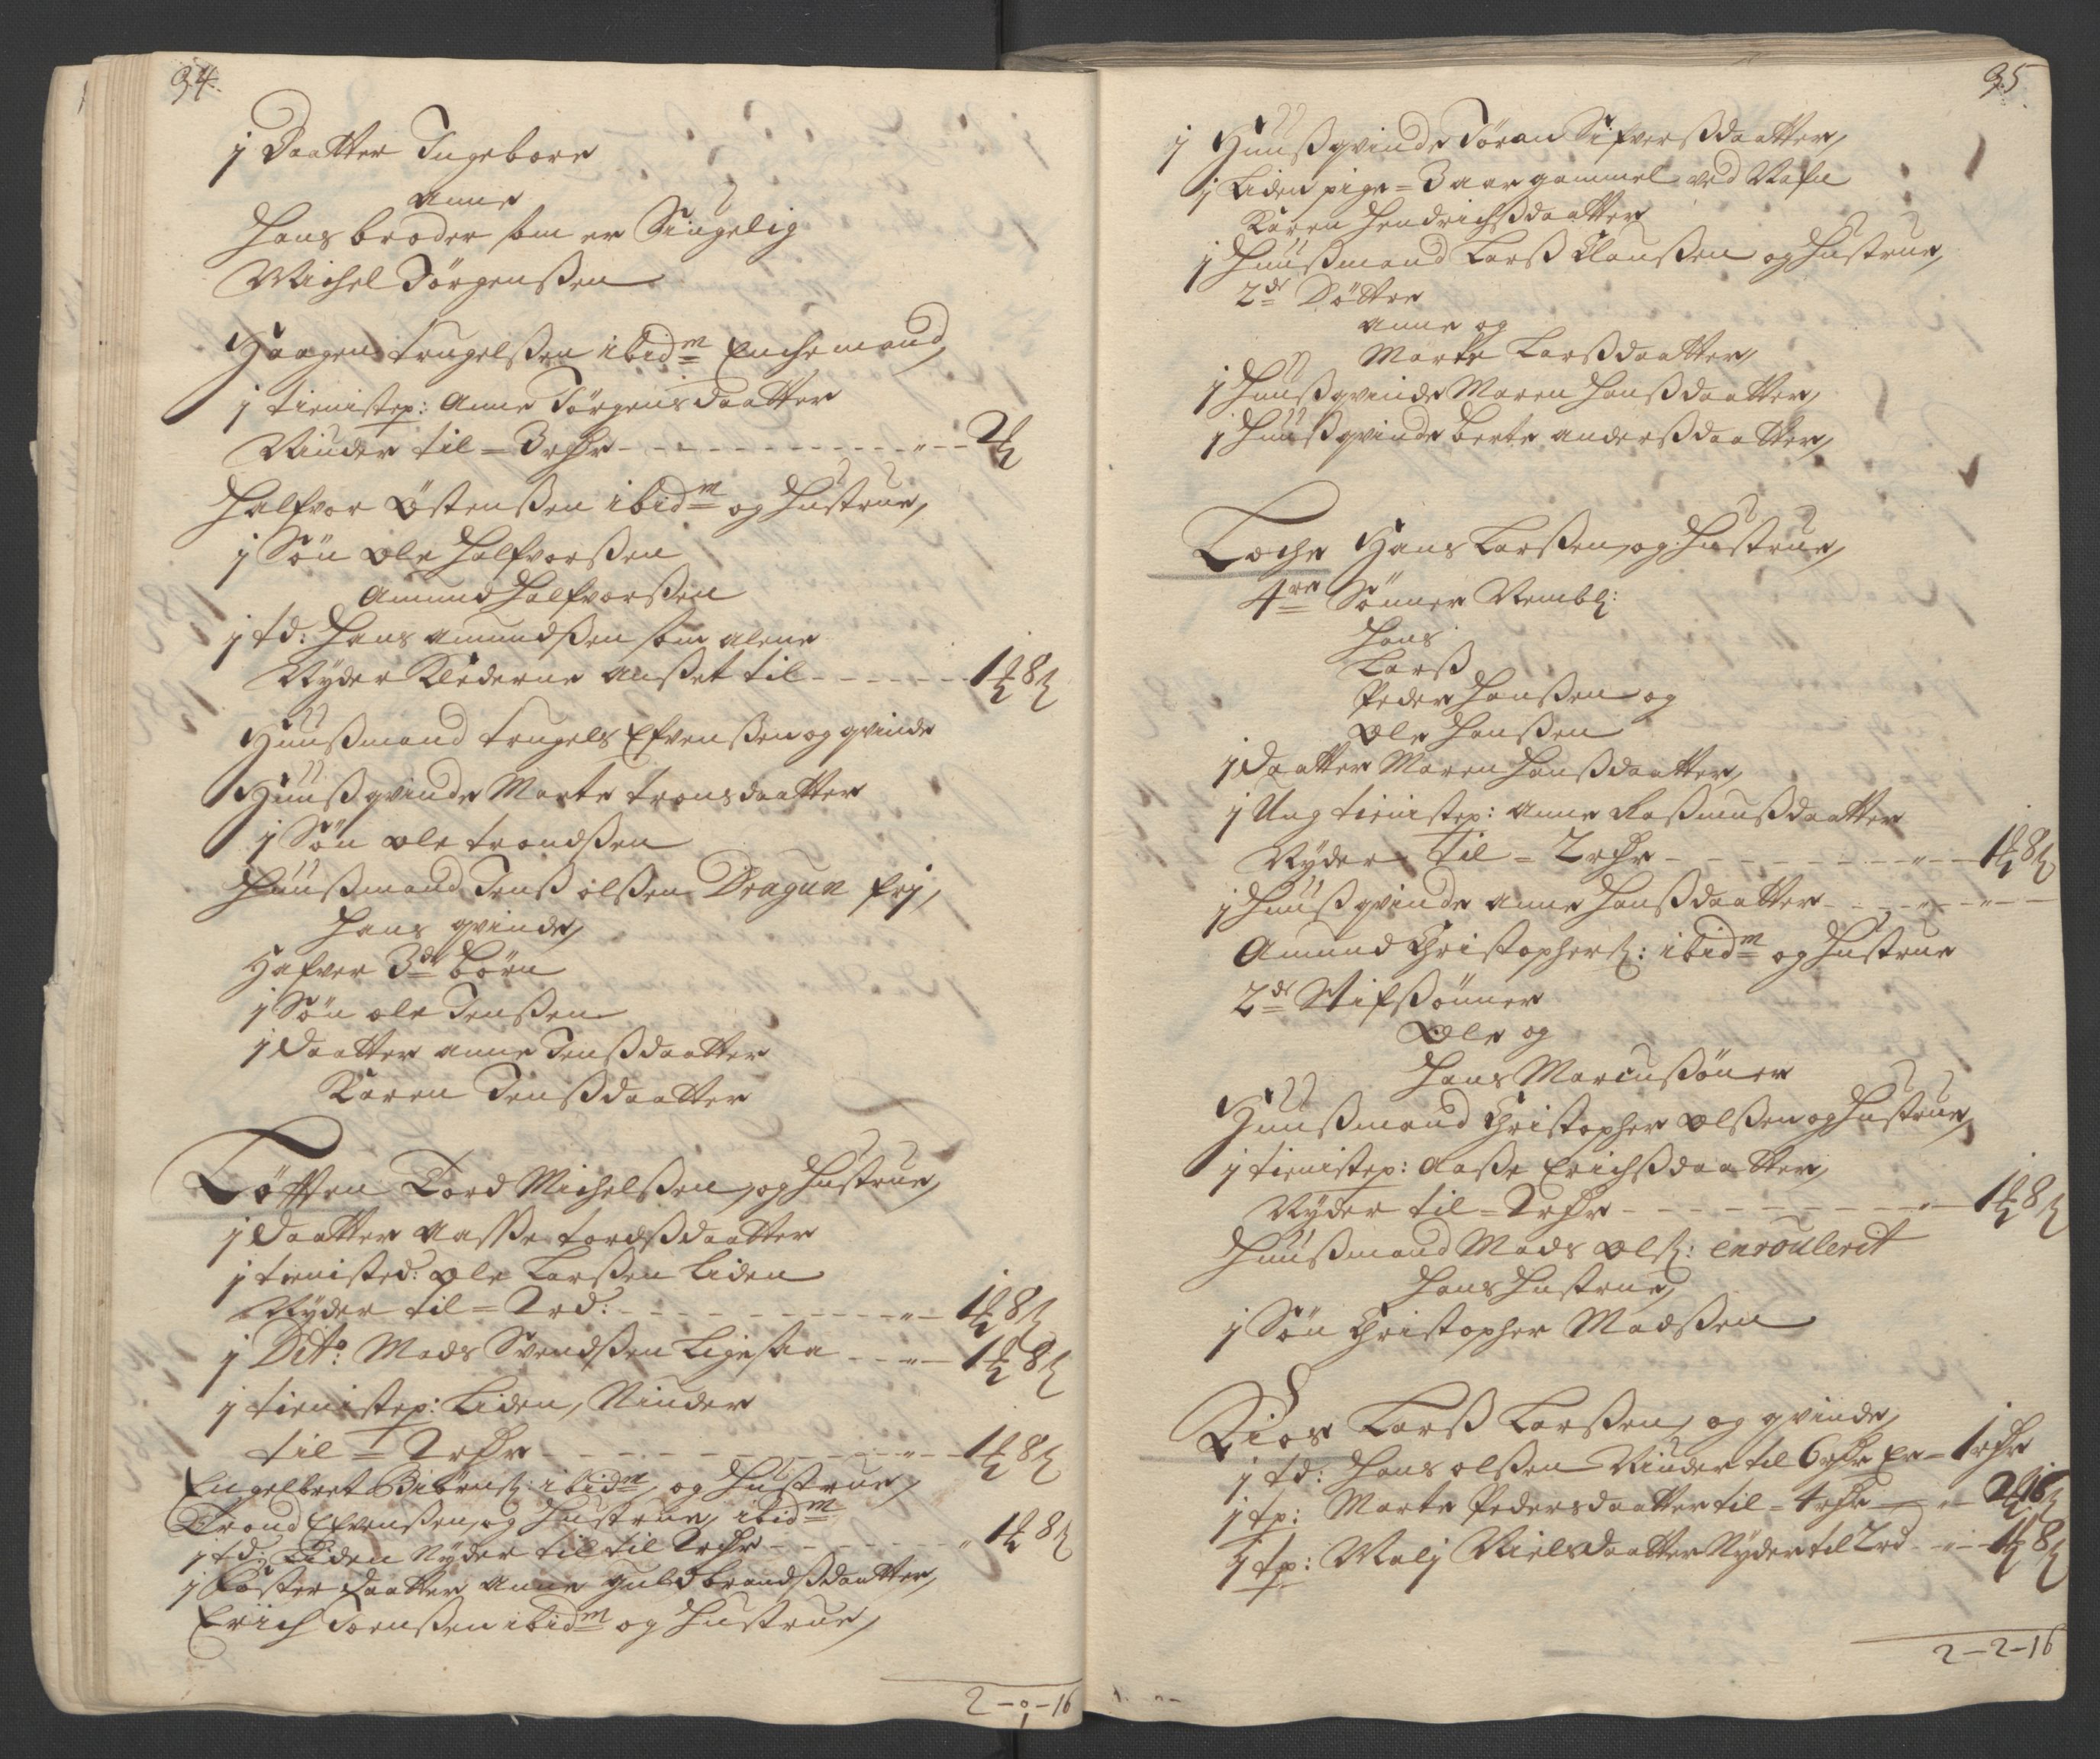 34.
1 Daatter Ingebore
Anne
Hans broder som er Singelig
Michel Jörgenssen
Haagen Trugelssen ibidm Enchemand,
1 tienistep: Anne Jörgensdaatter
Niuder til = 3 rdr - - - „ - 2
Halfvor Östenssen ibidm og Hustrue,
1 Sön Ole Halfvorssen
Amund Halfvorssen
1 td: Hans Amundssen som alene
Nyder Klæderne Ansset til - - - 1 8
Huussmand Trugels Efvenssen og qvinde
Huussqvinde Marte Tronsdaatter
1 Sön Ole Trondssen
Huussmand Jenss olssen Dragun frj,
Hans qvinde,
Hafver 3de Börn
1 Sön ole Jenssen
1 Daatter Anne Jenssdaatter
Karen Jenssdaatter
Töften Tord Michelssen, og Hustrue,
1 Daatter Aasse Tordssdaatter
1 tienisted: Ole Larssen Liden
Nyder til = 2 rd: - - - „ - 1 8
1 Dito: Mads Svendssen Ligesaa - - „ - 1 8
1 tienistep: Liden, Niuder
til = 2 rdr - - - „ - 1 8
Engelbret Biörns: ibidm, og Hustrue,
Trond Efvenssen, og Hustrue, ibidm
1 td: Liden Nyder til til 2 rdr - - - „ 1 8
1 Foster Daatter Anne Guldbrandssdaatter,
Erich Torenssen ibidm og Hustrue,
2 - 0 - 16
35
1 Huussqvinde Jöran Sifverssdaatter,
1 Liden pige = 3 aar gammel ved Nafn
Karen Hendrichssdaatter
1 Huussmand Larss Claussen og Hustrue,
2de Döttre
Anne og
Marte Larssdaatter,
1 Huussqvinde Maren Hanssdaatter,
1 Huussqvinde Berte Anderssdaatter,
Loche Hans Larssen, og Hustrue,
4re Sönner Nembl:
Hans
Larss
Peder Hanssen og
Ole Hanssen
1 Daatter Maren Hanssdaatter,
1 Ung tienistep: Anne Rassmussdaatter
Nyder til = 2 rdr - - - „ - 1 8
1 Huussqvinde Anne Hanssdaatter - - „ - „ -
Amund Christophers: ibidm og Hustrue
2de Stifssönner
Ole og
Hans Marcussöner
Huussmand Christopher Olssen og Hustrue,
1 tienistep: Aasse Erichssdaatter,
Nyder til = 2 rdr - - - „ - 1 8
Huussmand Mads Ols: enroulerit
Hans Hustrue,
1 Sön Christopher Madssen
Lios Larss Larssen, og qvinde,
1 td: Hans olssen Niuder til 6 rdr Er - 1 rdr
1 tp: Marte Pedersdaatter til = 4 rdr - „ - 2 16
1 tp: Malj Nielsdaatter Nyder til 2 rd - „ - 1 8
2 - 2 - 16